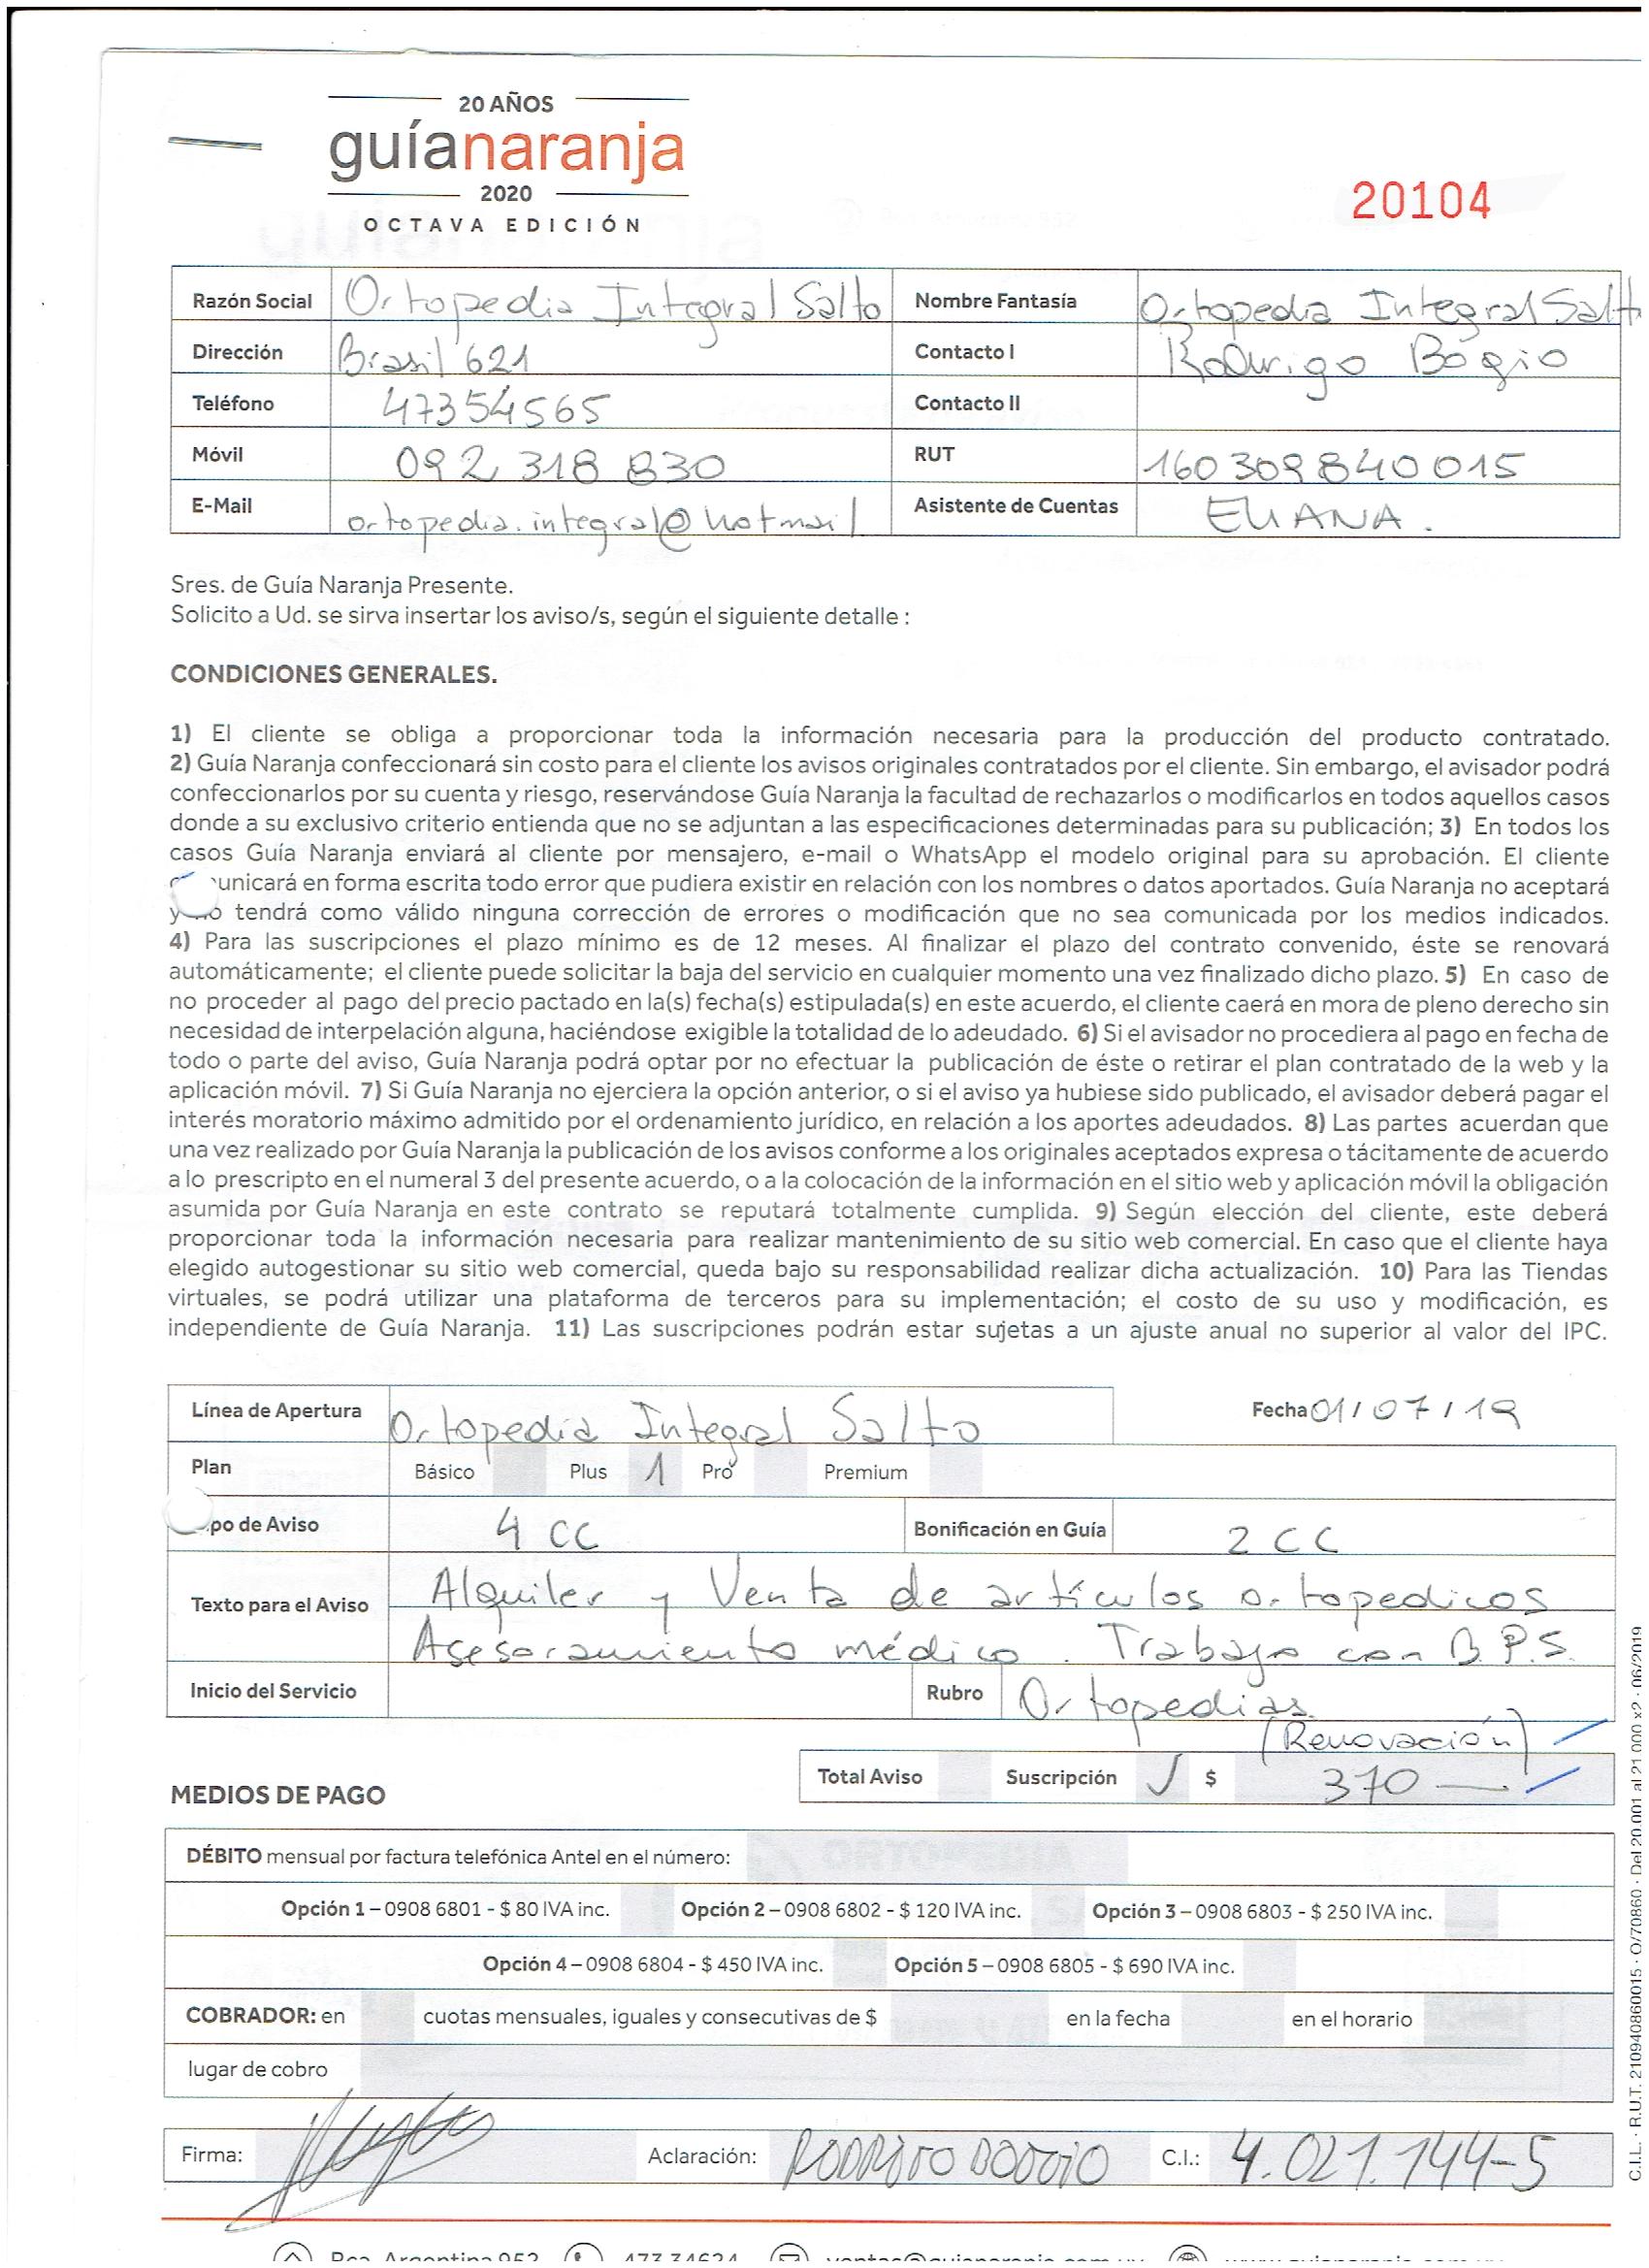 20 AÑOS
guíanaranja
2020
OCTAVA EDICIÓN
20104
Razón Social Ortopedia Integral Salto Nombre Fantasía Ortopedia Integral Salt
Dirección Brasil 621 Contacto I Rodrigo Bogio
Teléfono 47354565 Contacto II
Móvil 092 318 830 RUT 160309840015
E-Mail ortopedia.integral@hotmail Asistente de Cuentas ELIANA.
Sres. de Guía Naranja Presente.
Solicito a Ud. se sirva insertar los aviso/s, según el siguiente detalle :
CONDICIONES GENERALES.
1) El cliente se obliga a proporcionar toda la información necesaria para la producción del producto contratado.
2) Guía Naranja confeccionará sin costo para el cliente los avisos originales contratados por el cliente. Sin embargo, el avisador podrá
confeccionarlos por su cuenta y riesgo, reservándose Guía Naranja la facultad de rechazarlos o modificarlos en todos aquellos casos
donde a su exclusivo criterio entienda que no se adjuntan a las especificaciones determinadas para su publicación; 3) En todos los
casos Guía Naranja enviará al cliente por mensajero, e-mail o WhatsApp el modelo original para su aprobación. El cliente
unicará en forma escrita todo error que pudiera existir en relación con los nombres o datos aportados. Guía Naranja no aceptará
y no tendrá como válido ninguna corrección de errores o modificación que no sea comunicada por los medios indicados.
4) Para las suscripciones el plazo mínimo es de 12 meses. Al finalizar el plazo del contrato convenido, éste se renovará
automáticamente; el cliente puede solicitar la baja del servicio en cualquier momento una vez finalizado dicho plazo. 5) En caso de
no proceder al pago del precio pactado en la(s) fecha(s) estipulada(s) en este acuerdo, el cliente caerá en mora de pleno derecho sin
necesidad de interpelación alguna, haciéndose exigible la totalidad de lo adeudado. 6) Si el avisador no procediera al pago en fecha de
todo o parte del aviso, Guía Naranja podrá optar por no efectuar la publicación de éste o retirar el plan contratado de la web y la
aplicación móvil. 7) Si Guía Naranja no ejerciera la opción anterior, o si el aviso ya hubiese sido publicado, el avisador deberá pagar el
interés moratorio máximo admitido por el ordenamiento jurídico, en relación a los aportes adeudados. 8) Las partes acuerdan que
una vez realizado por Guía Naranja la publicación de los avisos conforme a los originales aceptados expresa o tácitamente de acuerdo
a lo prescripto en el numeral 3 del presente acuerdo, o a la colocación de la información en el sitio web y aplicación móvil la obligación
asumida por Guía Naranja en este contrato se reputará totalmente cumplida. 9) Según elección del cliente, este deberá
proporcionar toda la información necesaria para realizar mantenimiento de su sitio web comercial. En caso que el cliente haya
elegido autogestionar su sitio web comercial, queda bajo su responsabilidad realizar dicha actualización. 10) Para las Tiendas
virtuales, se podrá utilizar una plataforma de terceros para su implementación; el costo de su uso y modificación, es
independiente de Guía Naranja. 11) Las suscripciones podrán estar sujetas a un ajuste anual no superior al valor del IPC.
Línea de Apertura Ortopedia Integral Salto Fecha 01 / 07 / 19
Plan Básico Plus 1 Pro Premium
po de Aviso 4 CC Bonificación en Guía 2 CC
Texto para el Aviso Alquiler y Venta de artículos ortopedicos
Asesoramiento médico. Trabajo con B.P.S.
Inicio del Servicio Rubro Ortopedias
(Renovación)
Total Aviso Suscripción ✓ $ 370 —
MEDIOS DE PAGO
DÉBITO mensual por factura telefónica Antel en el número:
Opción 1 – 0908 6801 - $ 80 IVA inc. Opción 2 – 0908 6802 - $ 120 IVA inc. Opción 3 – 0908 6803 - $ 250 IVA inc.
Opción 4 – 0908 6804 - $ 450 IVA inc. Opción 5 – 0908 6805 - $ 690 IVA inc.
COBRADOR: en cuotas mensuales, iguales y consecutivas de $ en la fecha en el horario
lugar de cobro
Firma: Aclaración: RODRIGO BOGGIO C.I.: 4.021.144-5
Pca. Argentina 952 473 34624 ventas@guianaranja.com.uy
C.I.L. · R.U.T. 210940860015 · O/70860 · Del 20.001 al 21.000 x2 · 06/2019